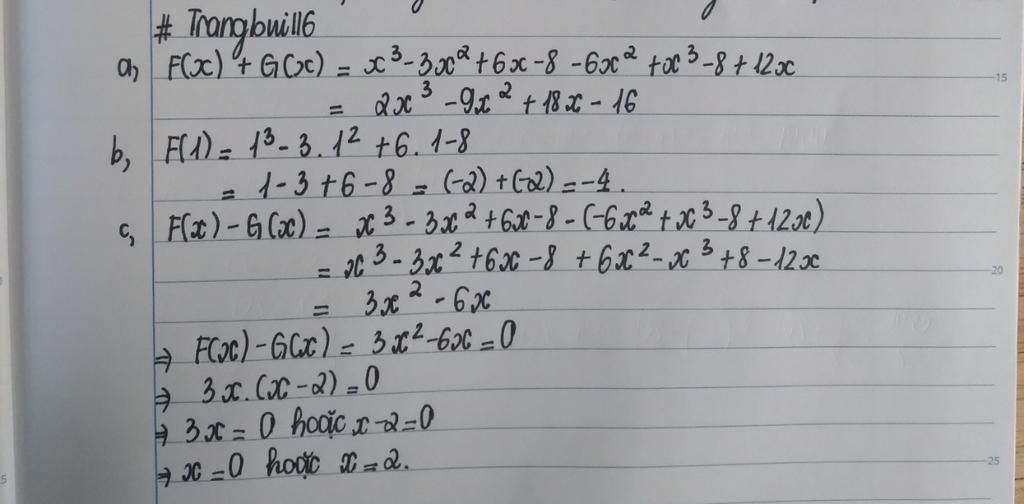 # Trangbui116
a, F(x) + G(x) = x³ - 3x² + 6x - 8 - 6x² + x³ - 8 + 12x
= 2x³ - 9x² + 18x - 16
b, F(1) = 1³ - 3 . 1² + 6 . 1 - 8
= 1 - 3 + 6 - 8 = (-2) + (-2) = -4 .
c, F(x) - G(x) = x³ - 3x² + 6x - 8 - (-6x² + x³ - 8 + 12x)
= x³ - 3x² + 6x - 8 + 6x² - x³ + 8 - 12x
= 3x² - 6x
⇒ F(x) - G(x) = 3x² - 6x = 0
⇒ 3x . (x - 2) = 0
⇒ 3x = 0 hoặc x - 2 = 0
⇒ x = 0 hoặc x = 2.
15
20
25
5